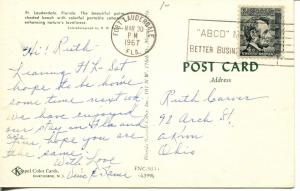 Ft. Lauderdale, Florida. The beautiful palm
shaded beach with colorful portable cabanas
enhancing nature's loveliness.
FORT LAUDERDALE
MAR 30
PM
1967
FLA.
"ABCD"
BETTER BUSIN
POST CARD
Address
Hi! Ruth
Leaving Fl. Sat
hope to be home
some time next wk.
we have enjoyed
our stay in Fla and
hope you are
the same.
With Love
Ruth Carver
98 Arch St
Akron
Ohio
Koppel Color Cards
HAWTHORNE, N.J.